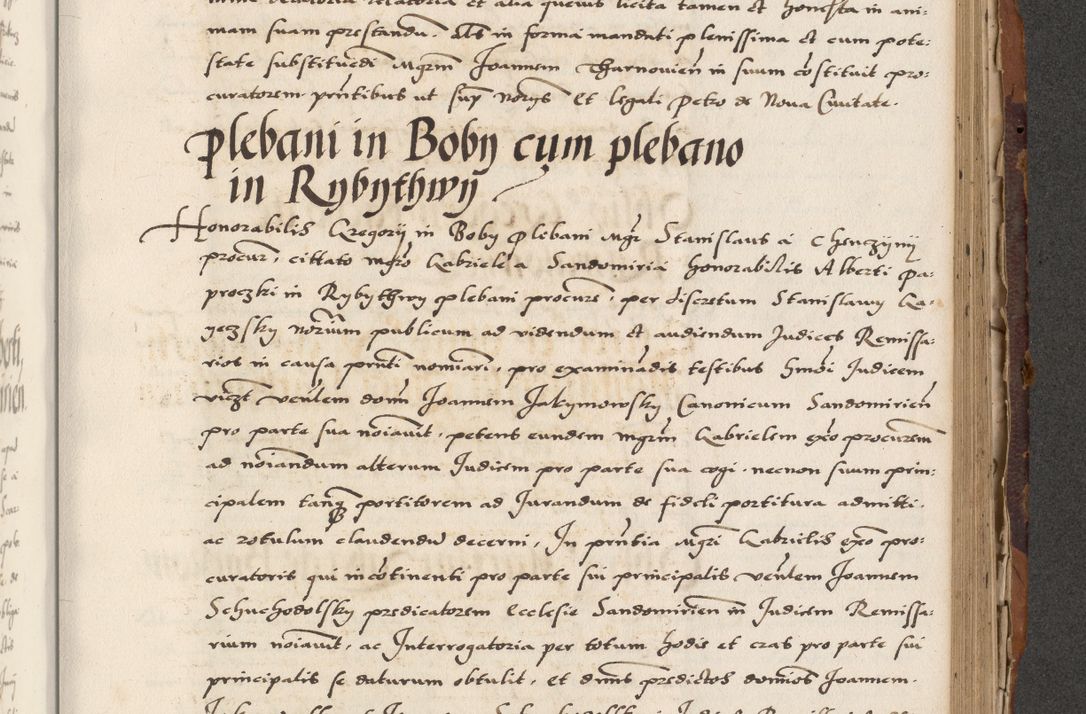 mam suam prestandu. Ac in forma mandati plenissima et cum pote:
state substituedi Mgrm Joannem Tharnovien in suum cōstituit pro:
curatorem. prntibus ut sup norys Et legali Petro de Nova Civitate.
Plebani in Boby cum plebano
in Rybythwy
Honorabilis Gregorij in Boby plebani Mgr Stanislaus a Chenczynij
procur, cittato mgro Gabriele a Sandomiria honorabilis Alberti Pa:
proczki in Rybythwy plebani procure, per discretum Stanislawy Ga:
yeczsky norium publicum ad videndum et audiendum Judices Remissa:
rios in causa prnti nominari, pro examinadis testibus hmoi Judicem
viczt venlem domi Joannem Jakymowsky Canonicum Sandomirien
pro parte sua noiavit, petens eundem mgrm Gabrielem exo procurem
ad noiandum alterum Judicem pro parte sua cogi, necnon suum prin:
cipalem tanq portitorem ad Jurandum de fideli portitura admitti,
ac rotulum claudendu decerni, In prntia Mgri Gabrielis exo pro:
curatoris qui incōtinenti pro parte sui principalis venlem Joannem
Schuchodolsky predicatorem Ecclesie Sandomirien in Judicem Remissa:
rium noiavit, ac Interrogatoria per totum hodie et cras pro parte sui
principalis se daturum obtulit, Et dnus predictos dominos Joannem.